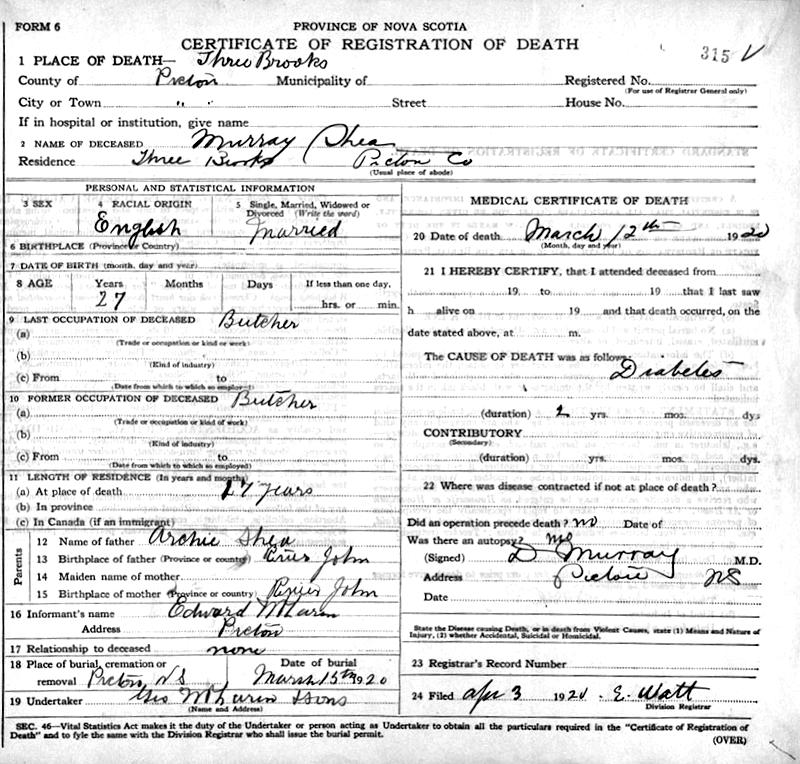 FORM 6
PROVINCE OF NOVA SCOTIA
CERTIFICATE OF REGISTRATION OF DEATH
315 V
1 PLACE OF DEATH— Three Brooks
County of Pictou Municipality of Registered No.
(For use of Registrar General only)
City or Town " " Street House No.
If in hospital or institution, give name
2 NAME OF DECEASED Murray Shea
Residence Three Brooks Pictou Co
(Usual place of abode)
PERSONAL AND STATISTICAL INFORMATION
3 SEX 4 RACIAL ORIGIN English 5 Single, Married, Widowed or Divorced (Write the word) Married
6 BIRTHPLACE (Province or Country)
7 DATE OF BIRTH (month, day and year)
8 AGE Years Months Days If less than one day,
27 hrs. or min.
9 LAST OCCUPATION OF DECEASED Butcher
(a)
(Trade or occupation or kind of work)
(b)
(Kind of industry)
(c) From to
(Date from which to which so employed)
10 FORMER OCCUPATION OF DECEASED Butcher
(a)
(Trade or occupation or kind of work)
(b)
(Kind of industry)
(c) From to
(Date from which to which so employed)
11 LENGTH OF RESIDENCE (In years and months)
(a) At place of death 27 years
(b) In province
(c) In Canada (if an immigrant)
Parents
12 Name of father Archie Shea
13 Birthplace of father (Province or country) River John
14 Maiden name of mother
15 Birthplace of mother (Province or country) River John
16 Informant's name Edward
Address Pictou
17 Relationship to deceased none
18 Place of burial, cremation or Date of burial
removal Pictou NS March 15th 1920
19 Undertaker Geo & Sons
(Name and Address)
MEDICAL CERTIFICATE OF DEATH
20 Date of death March 12th 1920
(Month, day and year)
21 I HEREBY CERTIFY, that I attended deceased from
19 to 19 that I last saw
h alive on 19 and that death occurred, on the
date stated above, at m.
The CAUSE OF DEATH was as follows:
Diabetes
(duration) 2 yrs. mos. dys
CONTRIBUTORY
(Secondary)
(duration) yrs. mos. dys.
22 Where was disease contracted if not at place of death?
Did an operation precede death? no Date of
Was there an autopsy? no
(Signed) D Murray M.D.
Address Pictou NS
Date
State the Disease causing Death, or in death from Violent Causes, state (1) Means and Nature of
Injury, (2) whether Accidental, Suicidal or Homicidal.
23 Registrar's Record Number
24 Filed Apr 3 1920 E. Watt
Division Registrar
SEC. 46—Vital Statistics Act makes it the duty of the Undertaker or person acting as Undertaker to obtain all the particulars required in the "Certificate of Registration of
Death" and to fyle the same with the Division Registrar who shall issue the burial permit.
(OVER)